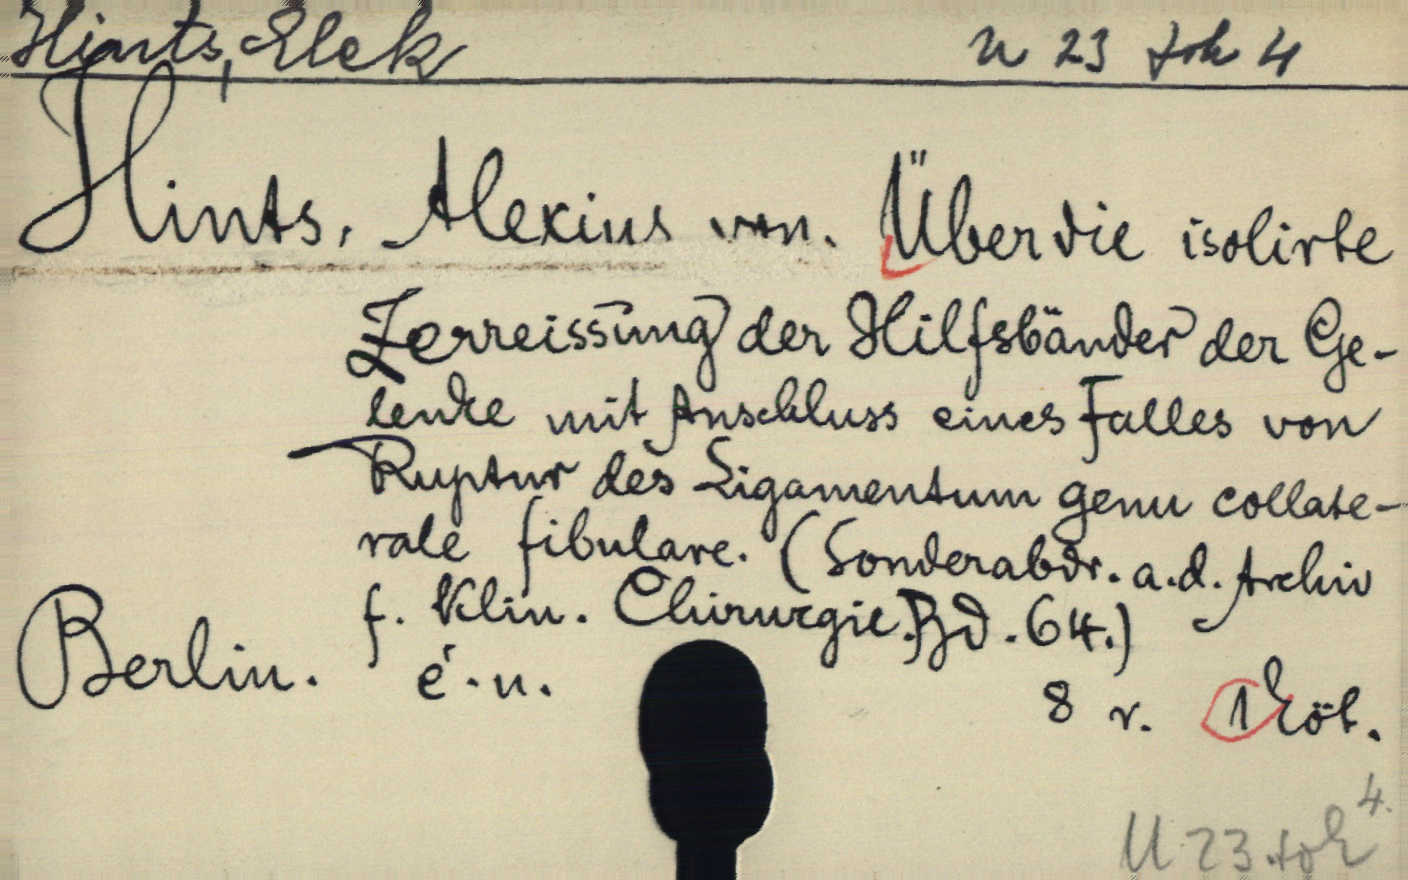 Hints, Elek U 23 tok 4
Hints, Alexius von. Über die isolirte
Zerreissung der Hilfsbänder der Ge-
lenke mit Anschluss eines Falles von
Ruptur des Ligamentum genu collate-
rale fibulare. (Sonderabdr. a. d. Archiv
f. Klin. Chirurgie. Bd. 64.)
Berlin. é. n. 8 r. 1 köt.
U 23 tok 4.